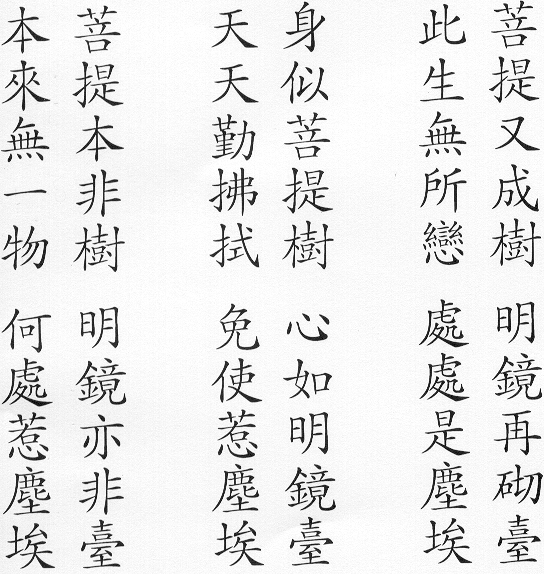 菩提又成樹 明鏡再砌臺
此生無所戀 處處是塵埃
身似菩提樹 心如明鏡臺
天天勤拂拭 免使惹塵埃
菩提本非樹 明鏡亦非臺
本來無一物 何處惹塵埃